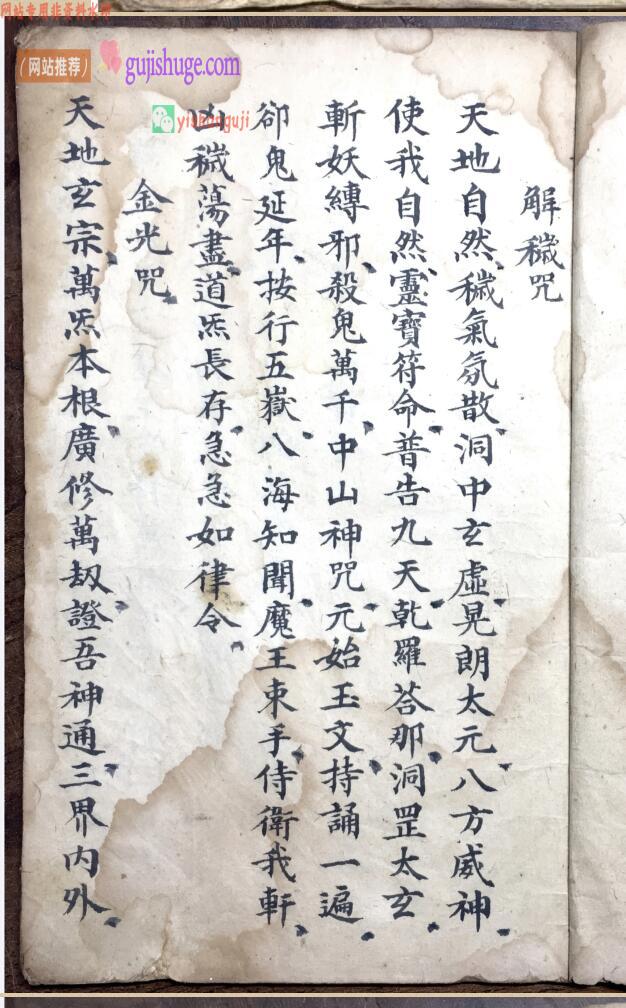 网站专用非资料水印
（网站推荐）
gujishuge.com
yishanguji
解穢咒
天地自然穢氣氛散洞中玄虛晃朗太元八方威神
使我自然靈寶符命普告九天乾羅荅那洞罡太玄
斬妖縛邪殺鬼萬千中山神咒元始玉文持誦一遍
卻鬼延年按行五嶽八海知聞魔王束手侍衛我軒
凶穢蕩盡道炁長存急急如律令
金光咒
天地玄宗萬炁本根廣修萬劫證吾神通三界內外